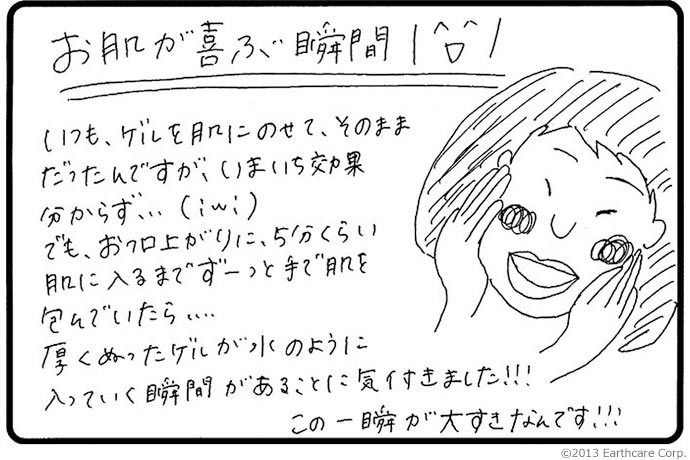 お肌が喜ぶ瞬間 \(^O^)/
いつも、ゲルを肌にのせて、そのまま
だったんですが、いまいち効果
分からず… (;w;)
でも、お風呂上がりに、5分くらい
肌に入るまでずーっと手で肌を
包んでいたら….
厚くぬったゲルが水のように
入っていく瞬間があることに気付きました!!!
この一瞬が大すきなんです!!!
©2013 Earthcare Corp.